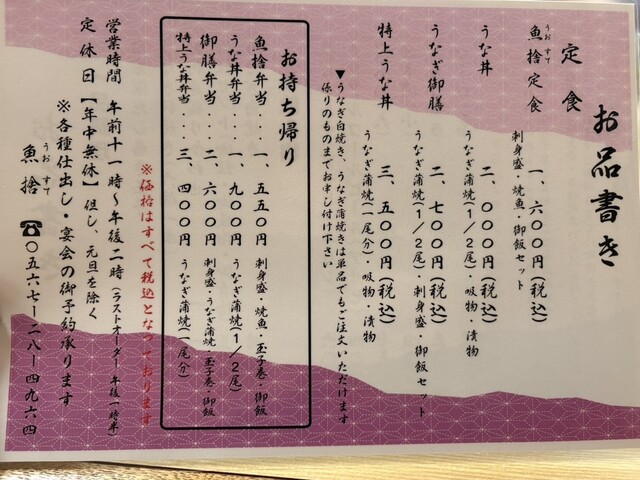 お品書き
定食
魚捨定食 一、六〇〇円(税込)
うおすて
刺身盛・焼魚・御飯セット
うな丼 二、〇〇〇円(税込)
うなぎ蒲焼(1/2尾)・吸物・漬物
うなぎ御膳 二、七〇〇円(税込)
うなぎ蒲焼(1/2尾)・刺身盛・御飯セット
特上うな丼 三、五〇〇円(税込)
うなぎ蒲焼(一尾分)・吸物・漬物
▼うなぎ白焼き、うなぎ蒲焼きは単品でもご注文いただけます
係りのものまでお申し付け下さい
お持ち帰り
魚捨弁当....一、五五〇円 刺身盛・焼魚・玉子巻・御飯
うな丼弁当...一、九〇〇円 うなぎ蒲焼(1/2尾)
御膳弁当....二、六〇〇円 刺身盛・うなぎ蒲焼・玉子巻・御飯
特上うな丼弁当...三、四〇〇円 うなぎ蒲焼(一尾分)
※価格はすべて税込となっております
営業時間 午前十一時〜午後二時(ラストオーダー 午後一時半)
定休日【年中無休】但し、元旦を除く
※各種仕出し・宴会の御予約承ります
うおすて
魚捨 ☎〇五六七-二八-四九六四